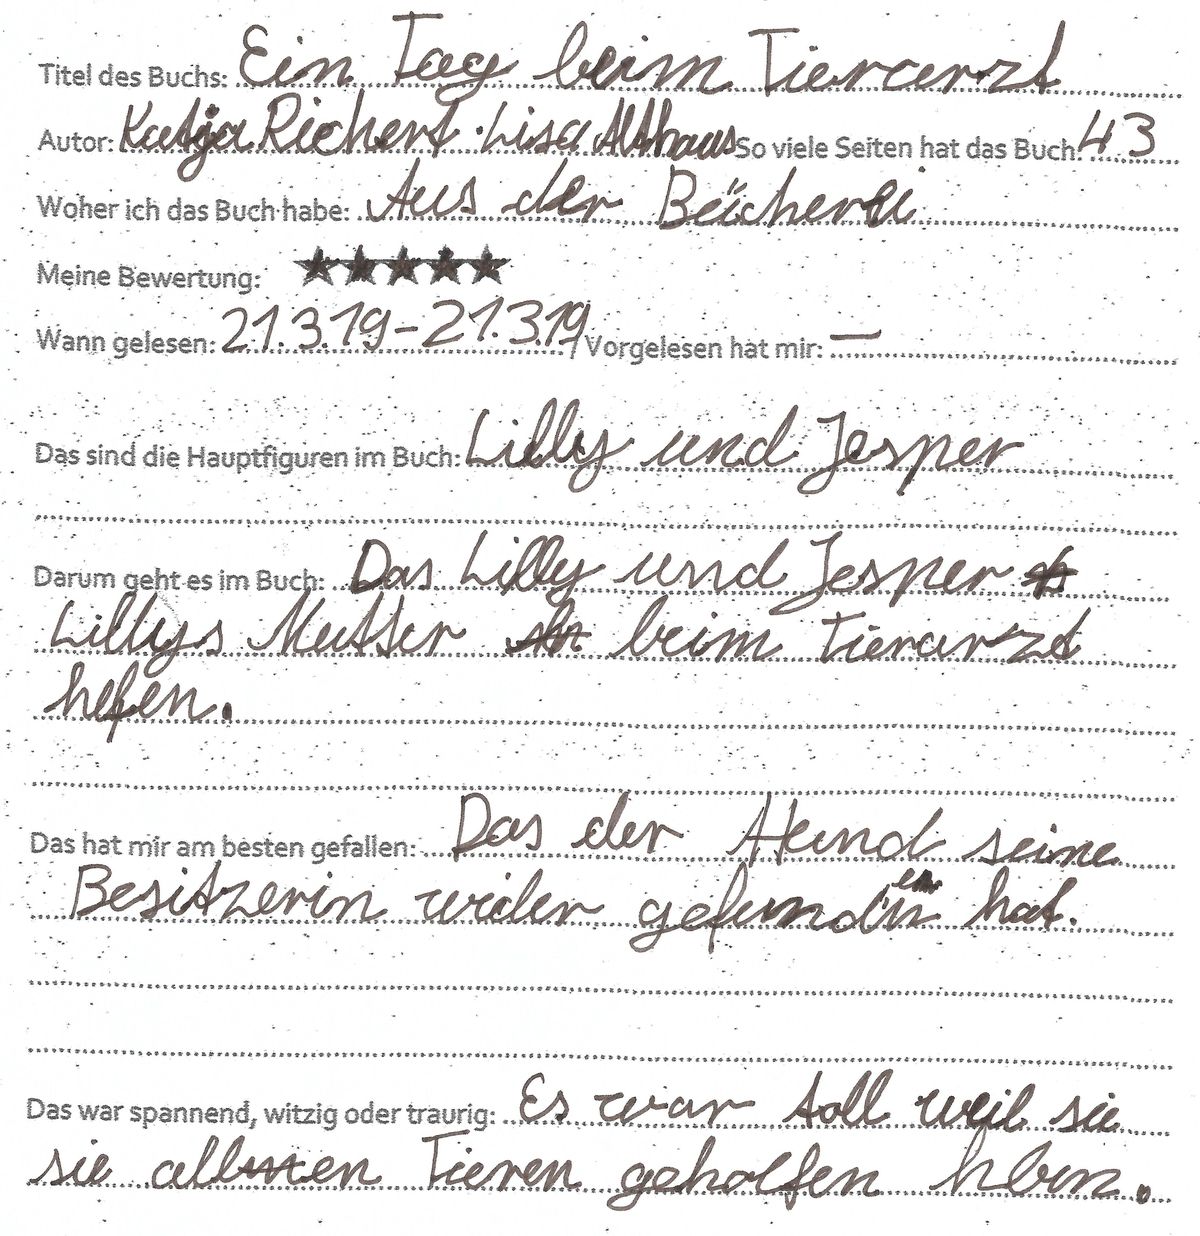 Titel des Buchs: Ein Tag beim Tierarzt
Autor: Katja Richert. Lisa Althaus So viele Seiten hat das Buch: 43
Woher ich das Buch habe: Aus der Bücherei
Meine Bewertung: ★★★★★
Wann gelesen: 21.3.19-21.3.19 Vorgelesen hat mir: —
Das sind die Hauptfiguren im Buch: Lilly und Jesper
Darum geht es im Buch: Das Lilly und Jesper
Lillys Mutter beim Tierarzt
hefen.
Das hat mir am besten gefallen: Das der Hund seine
Besitzerin wider gefunden hat.
Das war spannend, witzig oder traurig: Es war toll weil sie
sie allen Tieren geholfen hben.